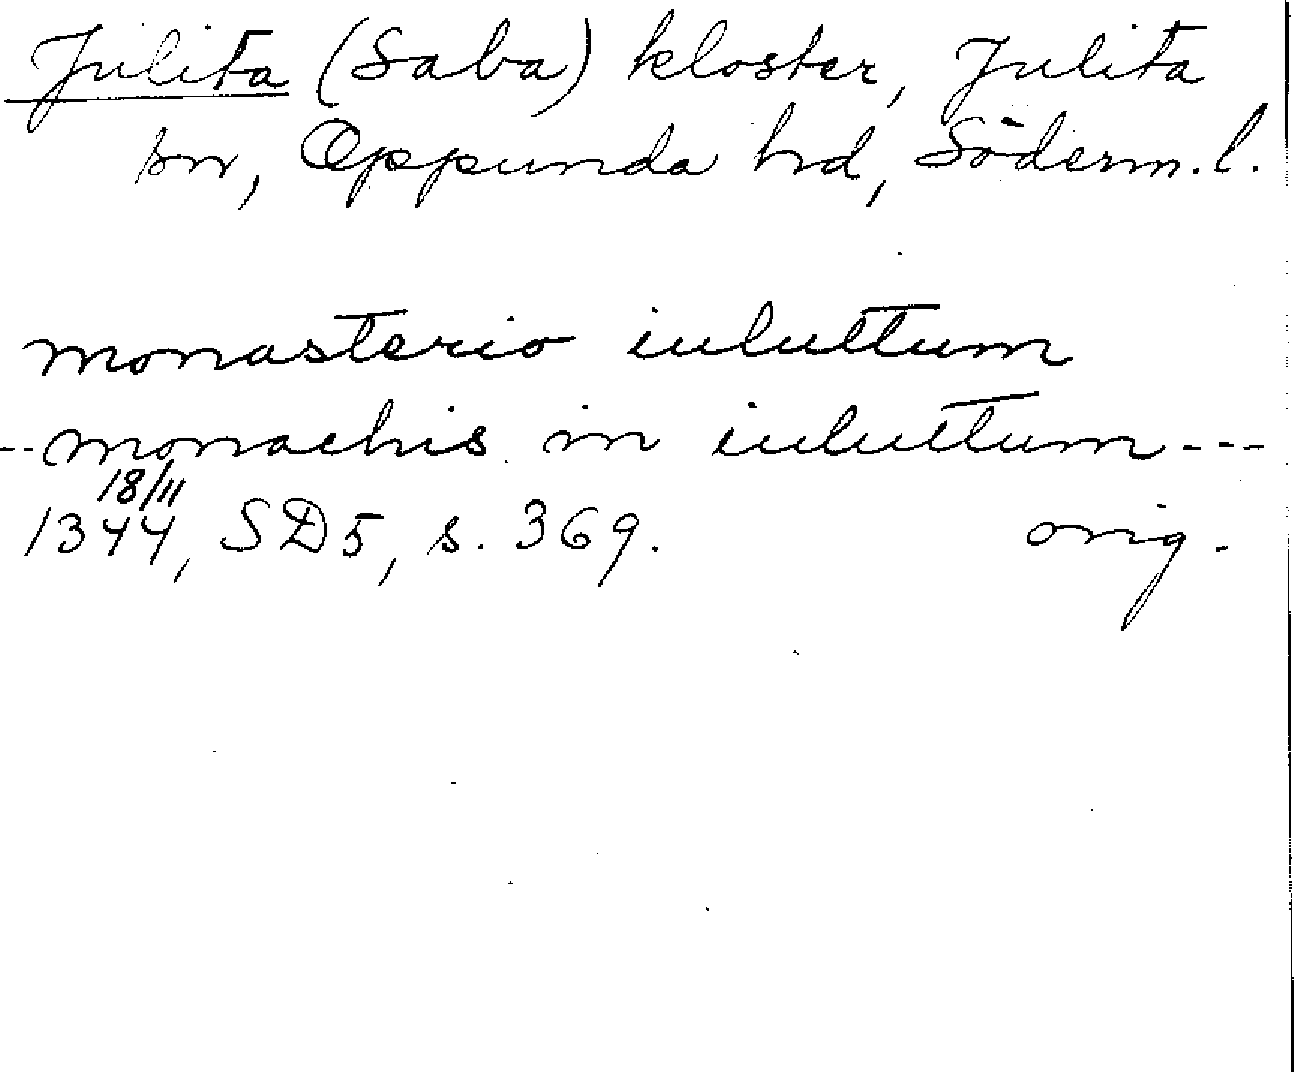 Julita (Saba) kloster, Julita
sn, Oppunda hd, Söderm. l.
monasterio iuluttum
-- monachis in iuluttum ---
18/11
1344, SD5, s. 369. orig.